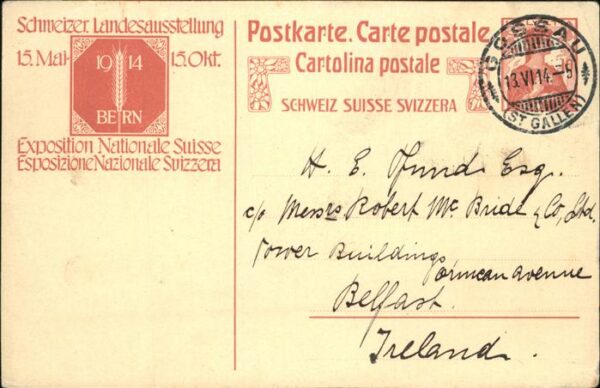 Schweizer. Landesausstellung
15. Mai- 15. Okt.
19 14
BERN
Exposition Nationale Suisse
Esposizione Nazionale Svizzera
Postkarte. Carte postale
Cartolina postale
SCHWEIZ SUISSE SVIZZERA
GOSSAU
13.VI.14.-9
(ST GALLEN)
H. E. Esq.
c/o Messrs Robert Mc Bride & Co, Ltd.
Tower Buildings
Ormeau avenue
Belfast.
Ireland.